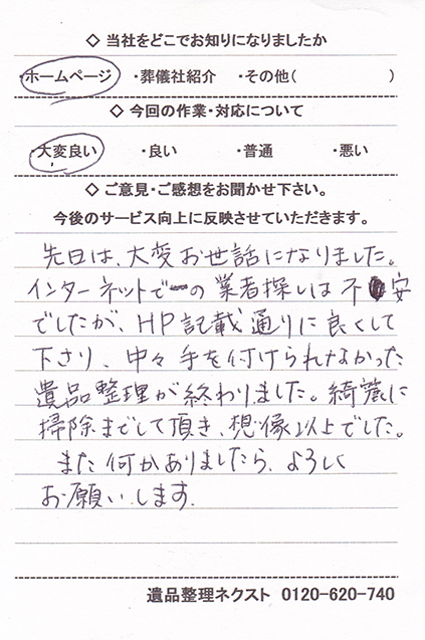 ◇ 当社をどこでお知りになりましたか
・ホームページ ・葬儀社紹介 ・その他( )
◇ 今回の作業・対応について
・大変良い ・良い ・普通 ・悪い
◇ ご意見・ご感想をお聞かせ下さい。
今後のサービス向上に反映させていただきます。
先日は、大変お世話になりました。
インターネットでの業者探しは不安
でしたが、HP記載通りに良くして
下さり、中々手を付けられなかった
遺品整理が終わりました。綺麗に
掃除までして頂き、想像以上でした。
また何かありましたら、よろしく
お願いします.
遺品整理ネクスト 0120-620-740